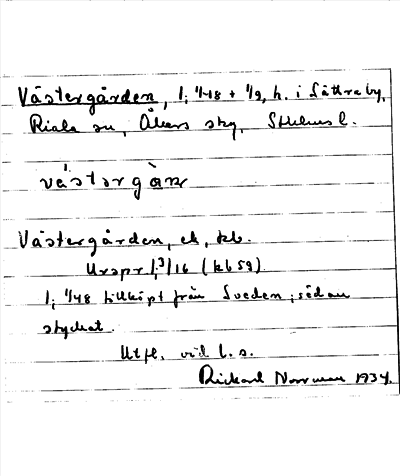 Västergården, 1; 11/48 + 1/9, h. i Lättra by,
Riala sn, Åkers skg, Sthlms l.
västərgån
Västergården, eb, kb.
Urspr 1; 3/16 (kb 59)
1; 11/48 tillköpt från Sveden; sedan
styckat.
Utfl. vid l. s.
Rickard Norrman 1934.